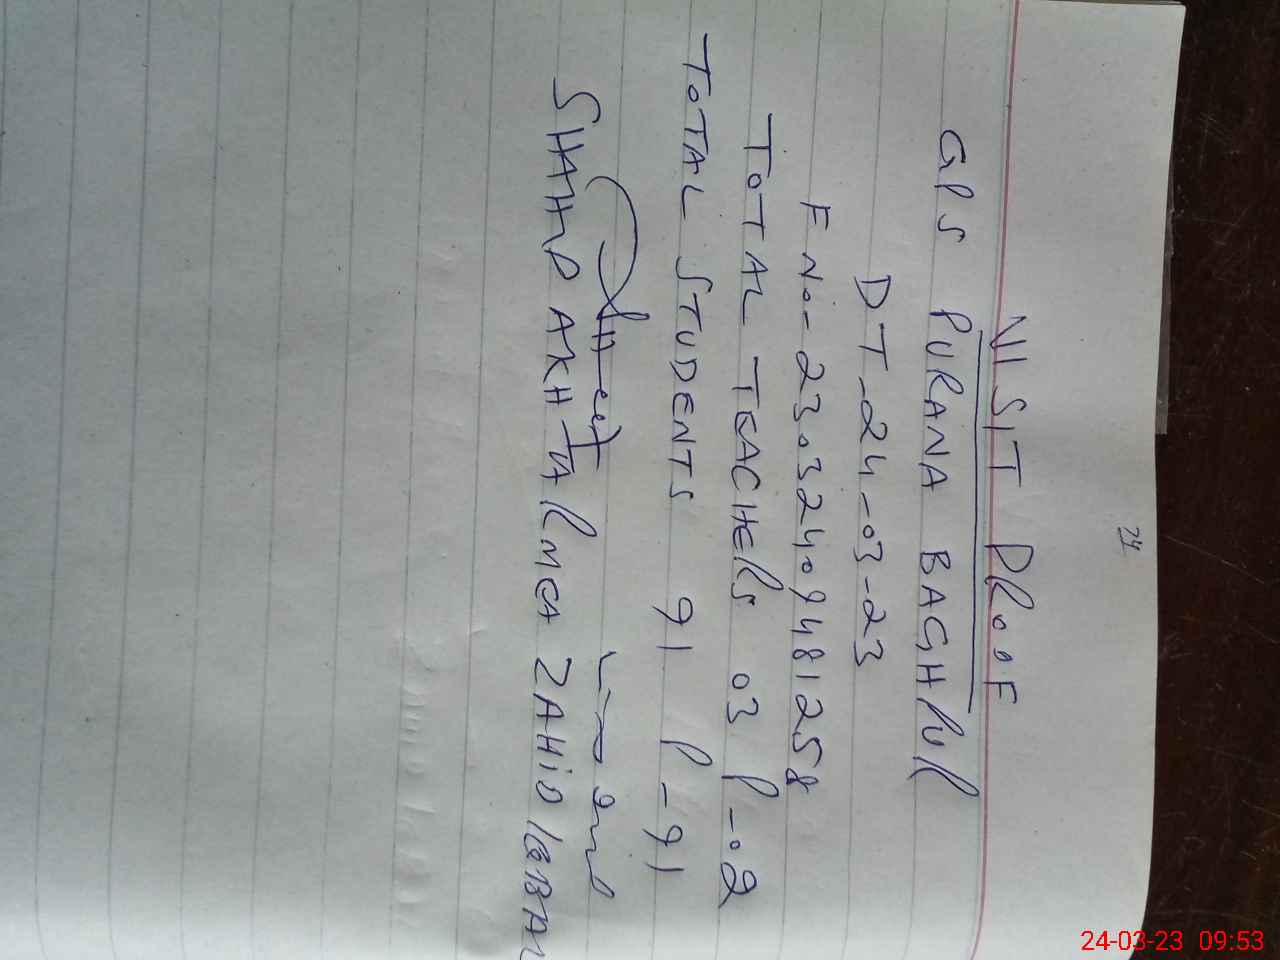 24
VISIT PROOF
GPS PURANA BAGHPUR
DT-24-03-23
F No- 23032409481258
TOTAL TEACHERS 03 P-02
TOTAL STUDENTS 91 P-91
SHAHID AKHTAR MEA ZAHID IQBAL
24-03-23 09:53